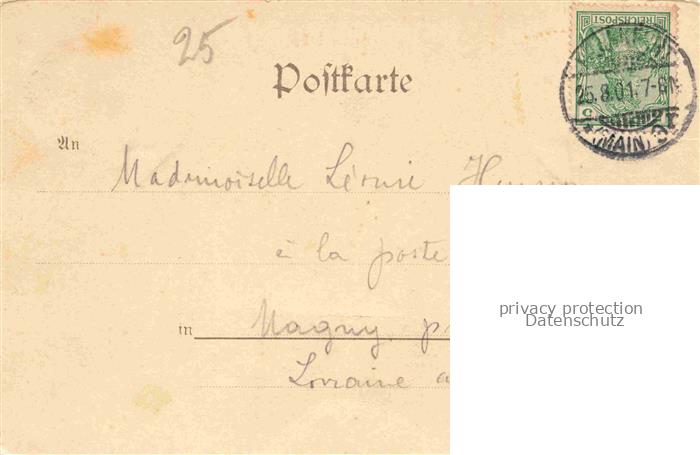 25
Postkarte
REICHSPOST
25.8.01.7-8N
(MAIN)
An
Mademoiselle Léonie
à la poste
in Magny
Lorraine
privacy protection
Datenschutz